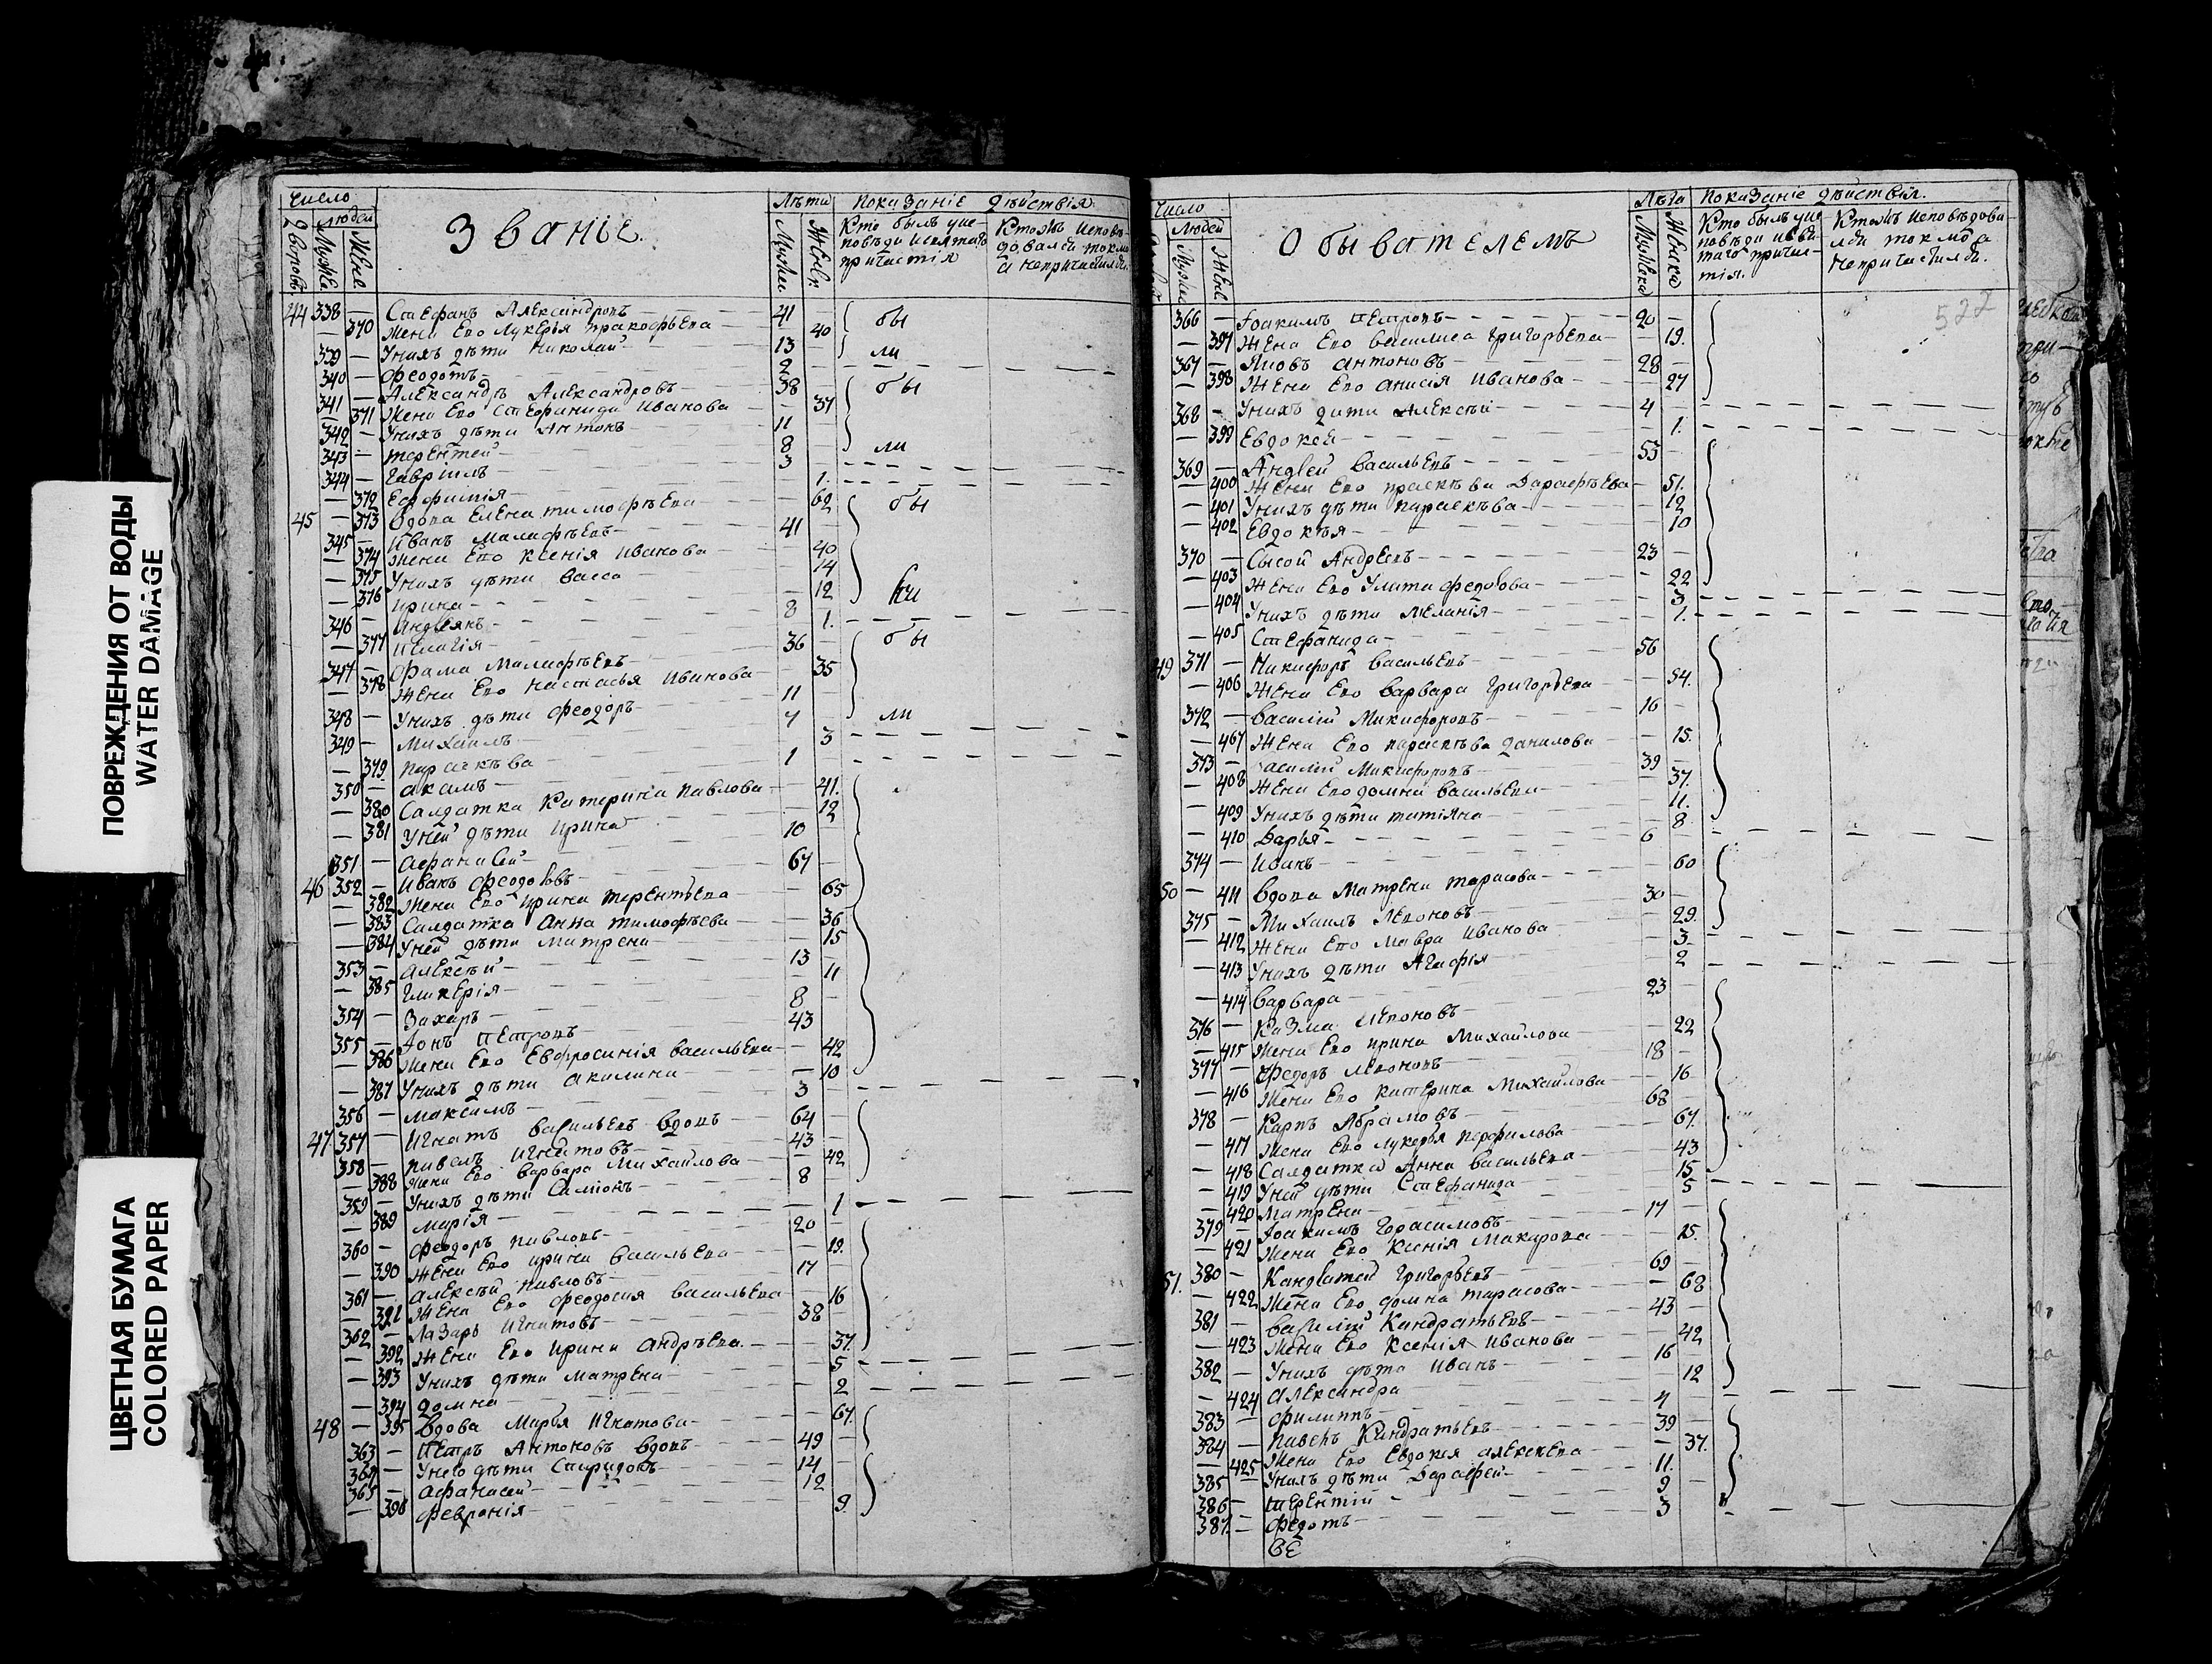 ПОВРЕЖДЕНИЯ ОТ ВОДЫ
WATER DAMAGE
ЦВЕТНАЯ БУМАГА
COLORED PAPER
Число
Людей
Званіе.
Лѣта
Показаніе дѣйствія.
44 338 — Стефанъ Александровъ — 41 бы
— 370 Жена Его Лукерья Пракофьева — 40
339 — Унихъ дѣти Николай — 13 ли
340 — Феодотъ — 2
341 — Александръ Александровъ — 38 бы
— 371 Жена Его Стефанида Иванова — 37
342 — Унихъ дѣти Антонъ — 11
343 — Терентей — 8 ли
344 — Гаврілъ — 3
— 372 Ефимія — 1.
45 — 373 Вдова Елена Тимофѣева — 62 бы
345 — Иванъ Малафѣевъ — 41
— 374 Жена Его Ксенія Иванова — 40
— 375 Унихъ дѣти Васса — 14
— 376 Ирина — 12
346 — Андреянъ — 8
— 377 Пелагія — 1.
347 — Фама Малафѣевъ — 36 бы
— 378 Жена Его Настасья Иванова — 35
348 — Унихъ дѣти Феодоръ — 11
349 — Михаилъ — 7 ли
— 379 Параскѣва — 3
350 — Акимъ — 1
— 380 Салдатка Катерина Павлова — 41.
— 381 Уней дѣти Ирина — 12
351 — Афанасей — 10
46 352 — Иванъ Феодоровъ — 67
— 382 Жена Его Ирина Терентьева — 65
— 383 Салдатка Анна Тимофѣева — 36
— 384 Уней дѣти Матрена — 15
353 — Алексѣй — 13
— 385 Гликерія — 11
354 — Захаръ — 8
355 — Іонъ Петровъ — 43
— 386 Жена Его Евфросинія Васильева — 42
— 387 Унихъ дѣти Акилина — 10
356 — Максимъ — 3
47 357 — Игнатъ Васильевъ вдовъ — 64
358 — Павелъ Игнатовъ — 43
— 388 Жена Его Варвара Михайлова — 42
359 — Унихъ дѣти Самсонъ — 8
— 389 Марія — 1
360 — Феодоръ Павловъ — 20
— 390 Жена Его Ирина Васильева — 19.
361 — Алексѣй Павловъ — 17
— 391 Жена Его Феодосия Васильева — 16
362 — Лазарь Игнатовъ — 38
— 392 Жена Его Ирина Андрѣева — 37.
— 393 Унихъ дѣти Матрена — 5
— 394 Домна — 2
48 — 395 Вдова Марья Игнатова — 67.
363 — Петръ Антоновъ вдовъ — 49
364 — Унего дѣти Спиридонъ — 14
365 — Афанасей — 12
— 396 Февронія — 9.
Число
Людей
Обывателемъ
Лѣта
Показаніе дѣйствія.
522
366 — Іоакимъ Петровъ — 20
— 397 Жена Его Василиса Григорьева — 19.
367 — Яковъ Антоновъ — 28
— 398 Жена Его Анисія Иванова — 27
368 — Унихъ дѣти Алексѣй — 4
— 399 Евдокея — 1.
369 — Андрей Васильевъ — 53
— 400 Жена Его Праскѣва Дарафѣева — 51.
— 401 Унихъ дѣти Параскѣва — 12
— 402 Евдокѣя — 10
370 — Сысой Андрѣевъ — 23
— 403 Жена Его Улита Федорова — 22
— 404 Унихъ дѣти Меланія — 3
— 405 Стефанида — 1.
49 371 — Никифоръ Васильевъ — 56
— 406 Жена Его Варвара Григорьева — 54.
372 — Василій Микифоровъ — 16
— 407 Жена Его Параскѣва Данилова — 15.
373 — Василей Микифоровъ — 39
— 408 Жена Его Домна Васильева — 37.
— 409 Унихъ дѣти Татіяна — 11.
— 410 Дарья — 8
374 — Иванъ — 6
50 — 411 Вдова Матрена Тарасова — 60
375 — Михаилъ Леоновъ — 30
— 412 Жена Его Мавра Иванова — 29.
— 413 Унихъ дѣти Агафія — 3
— 414 Варвара — 2
376 — Казма Леоновъ — 23
— 415 Жена Его Ирина Михайлова — 22
377 — Федоръ Леоновъ — 18
— 416 Жена Его Катерина Михайлова — 16
378 — Карпъ Абрамовъ — 68
— 417 Жена Его Лукерья Перфилова — 67.
— 418 Салдатка Анна Васильева — 43
— 419 Уней дѣти Стефанида — 15
— 420 Матрена — 5
379 — Іоакимъ Гарасимовъ — 17
— 421 Жена Его Ксенія Макарова — 15.
51. 380 — Кандратей Григорьевъ — 69
— 422 Жена Его Домна Тарасова — 68
381 — Василій Кандратьевъ — 43
— 423 Жена Его Ксенія Иванова — 42
382 — Унихъ дѣти Иванъ — 16
— 424 Александра — 12
383 — Филиппъ — 4
384 — Павелъ Кандратьевъ — 39
— 425 Жена Его Евдокія Алексѣева — 37.
385 — Унихъ дѣти Дарафей — 11.
386 — Терентій — 9
387. — Федотъ — 3
ВЕ